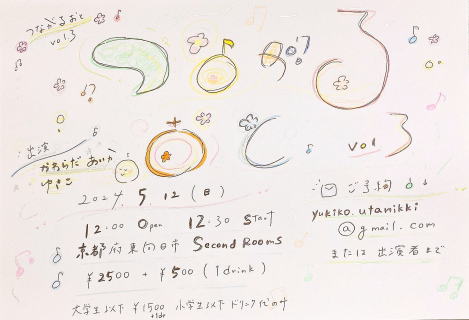 つながるおと
vol.3
つながる
おと vol 3
出演
かわらだ あいか
ゆきこ
2024. 5 12 (日)
12:00 Open 12:30 Start
京都府東向日市 Second Rooms
¥2500 + ¥500 (1drink)
大学生以下 ¥1500 小学生以下ドリンク代のみ
+1dr
ご予約
yukiko.utanikki
@gmail.com
または 出演者まで